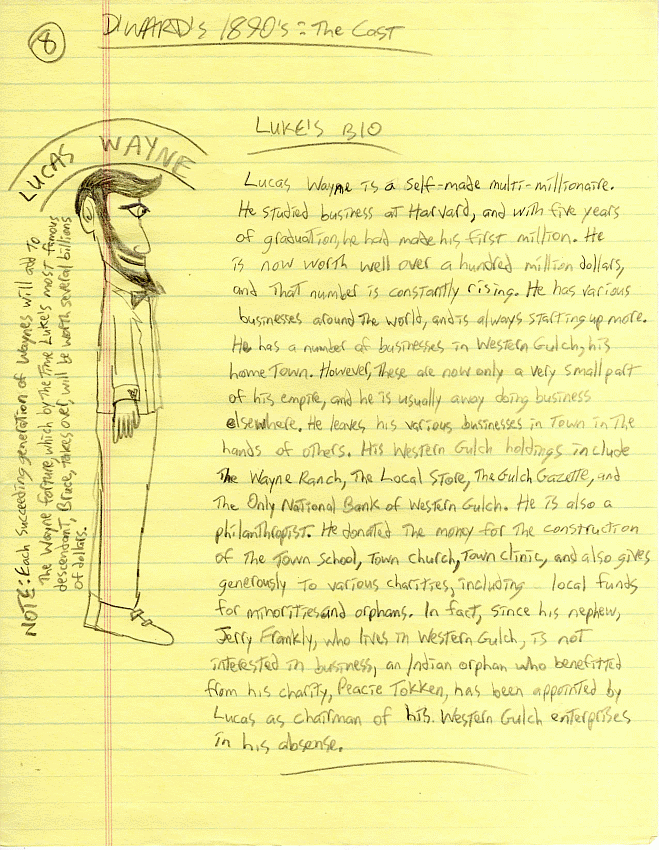 8
D'WARD'S 1890's: The Cast
LUCAS WAYNE
LUKE'S BIO
Lucas Wayne is a self-made multi-millionaire.
He studied business at Harvard, and with five years
of graduation, he had made his first million. He
is now worth well over a hundred million dollars,
and that number is constantly rising. He has various
businesses around the world, and is always starting up more.
He has a number of businesses in Western Gulch, his
home town. However, these are now only a very small part
of his empire, and he is usually away doing business
elsewhere. He leaves his various businesses in town in the
hands of others. His Western Gulch holdings include
the Wayne Ranch, The Local Store, The Gulch Gazette, and
the Only National Bank of Western Gulch. He is also a
philanthropist. He donated the money for the construction
of the Town School, Town church, Town clinic, and also gives
generously to various charities, including local funds
for minorities and orphans. In fact, since his nephew,
Jerry Frankly, who lives in Western Gulch, is not
interested in business, an Indian orphan who benefitted
from his charity, Peacie Tokken, has been appointed by
Lucas as chairman of his Western Gulch enterprises
in his absense.
NOTE: Each succeeding generation of Waynes will add to
the Wayne fortune, which by the time Luke's most famous
descendant, Bruce, takes over, will be worth several billions
of dollars.